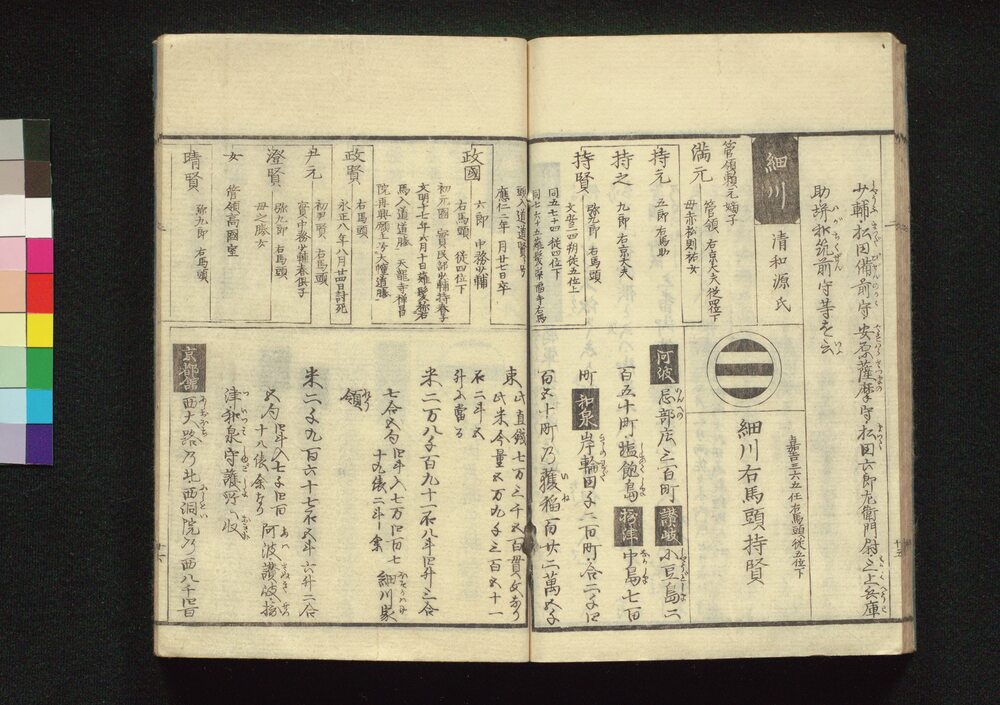 少輔松田備前守安原薩摩守松田六郎左衛門尉上兵庫
助垪和筑前守等を云
細川
清和源氏
管領頼元嫡子
満元
管領 右京大夫従四位下
母赤松則祐女
持元
五郎 右馬助
持之
九郎 右京大夫
持賢
弥九郎 右馬頭
文安三四朔従五位上
同五七十四従四位下
頭入道道賢ト号
應仁二年 月廿七日卒
政國
六郎 中務少輔
右馬頭 従四位下
初元國 實民部少輔持春子
文明十七年六月十日薙髪称右
馬入道道勝 天龍寺禅昌
院再興領主少大幢道勝
政賢
右馬頭
永正八年八月廿四日討死
尹元
初尹賢 右馬頭
實中務少輔春倶子
澄賢
弥九郎 右馬頭
母之勝女
女
管領高國室
晴賢
弥九郎 右馬頭
嘉吉三六五任右馬頭従五位下
細川右馬頭持賢
阿波
忌部庄三百町
讃岐
小豆島二
百五十町塩飽島
摂津
中島七百
町
和泉
岸輪田千二百町合二千四
百五十町乃穫稲百廿二萬五千
東此直錢七万三千五百貫文なり
此米今量五万九千三百五十一
石二斗五
升に當る
米二万八千百九十一石八斗四升三合
七合五勺四斗入七万四百七
十九俵二斗余
細川家
領
米二千九百六十七石五斗六升二合
五勺四斗入七千四百
十八俵余なり
阿波讃岐摂
津和泉守護所収
京都舘
西大路乃北西洞院乃西八千四百